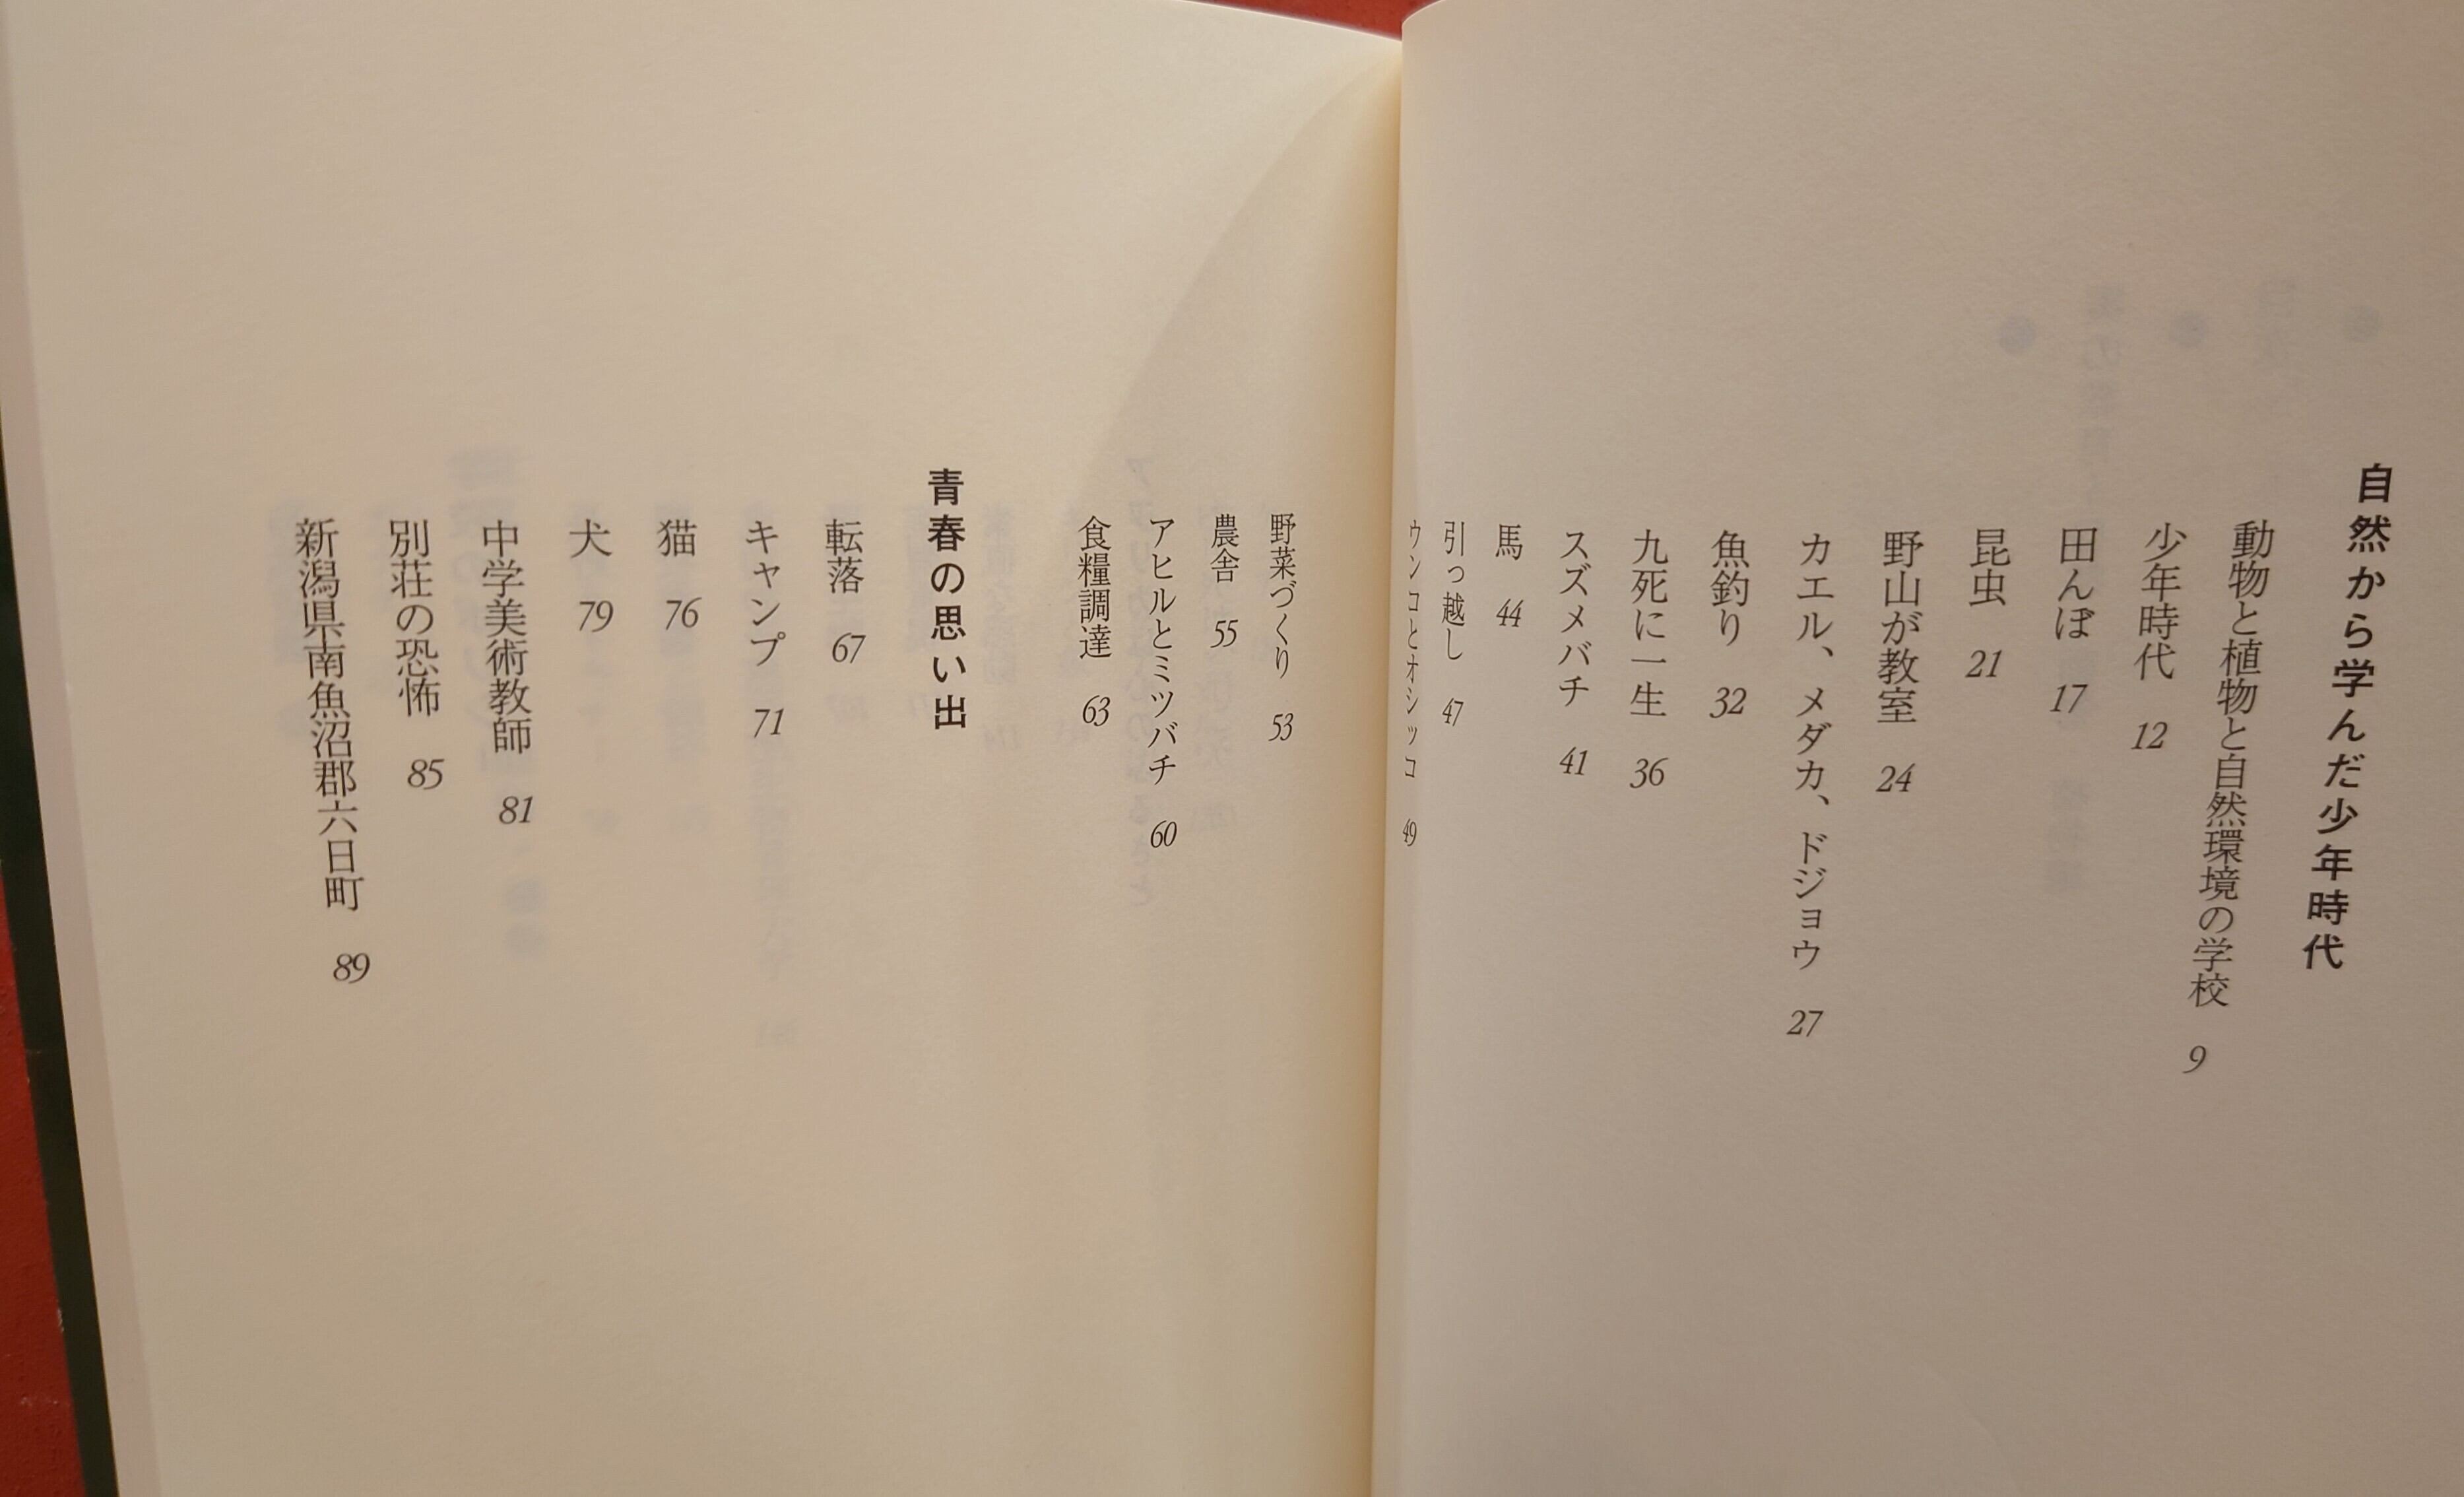 自然から学んだ少年時代
動物と植物と自然環境の学校 9
少年時代 12
田んぼ 17
昆虫 21
野山が教室 24
カエル、メダカ、ドジョウ 27
魚釣り 32
九死に一生 36
スズメバチ 41
馬 44
引っ越し 47
ウンコとオシッコ 49
野菜づくり 53
農舎 55
アヒルとミツバチ 60
食糧調達 63
青春の思い出
転落 67
キャンプ 71
猫 76
犬 79
中学美術教師 81
別荘の恐怖 85
新潟県南魚沼郡六日町 89